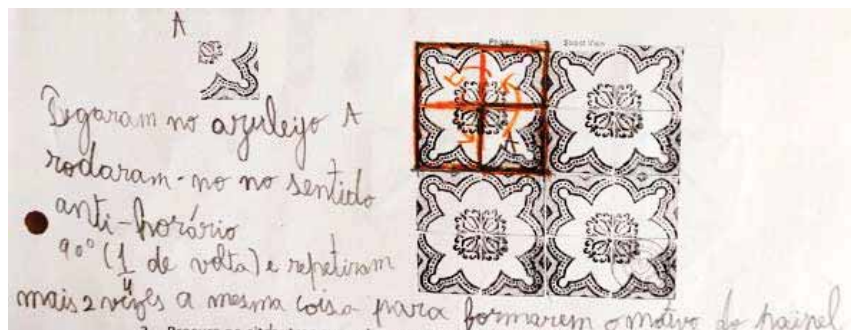 A
Pegaram no azuleijo A
rodaram-no no sentido
anti-horário
90° (1/4 de volta) e repetiram
mais 2 vezes a mesma coisa para formarem o motivo do painel
A